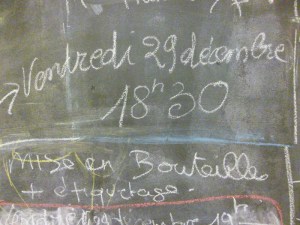 Vendredi 29 décembre
18h30
Mise en Bouteille
+ étiquetage.